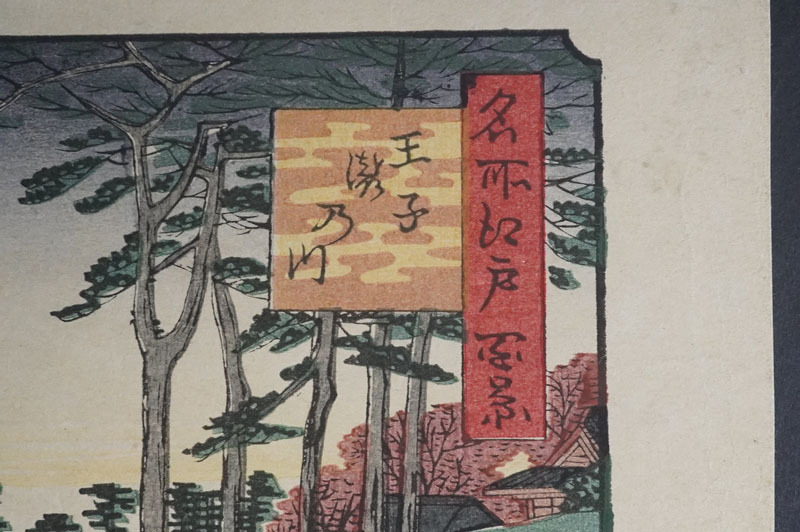 名所江戸百景
王子
瀧乃川